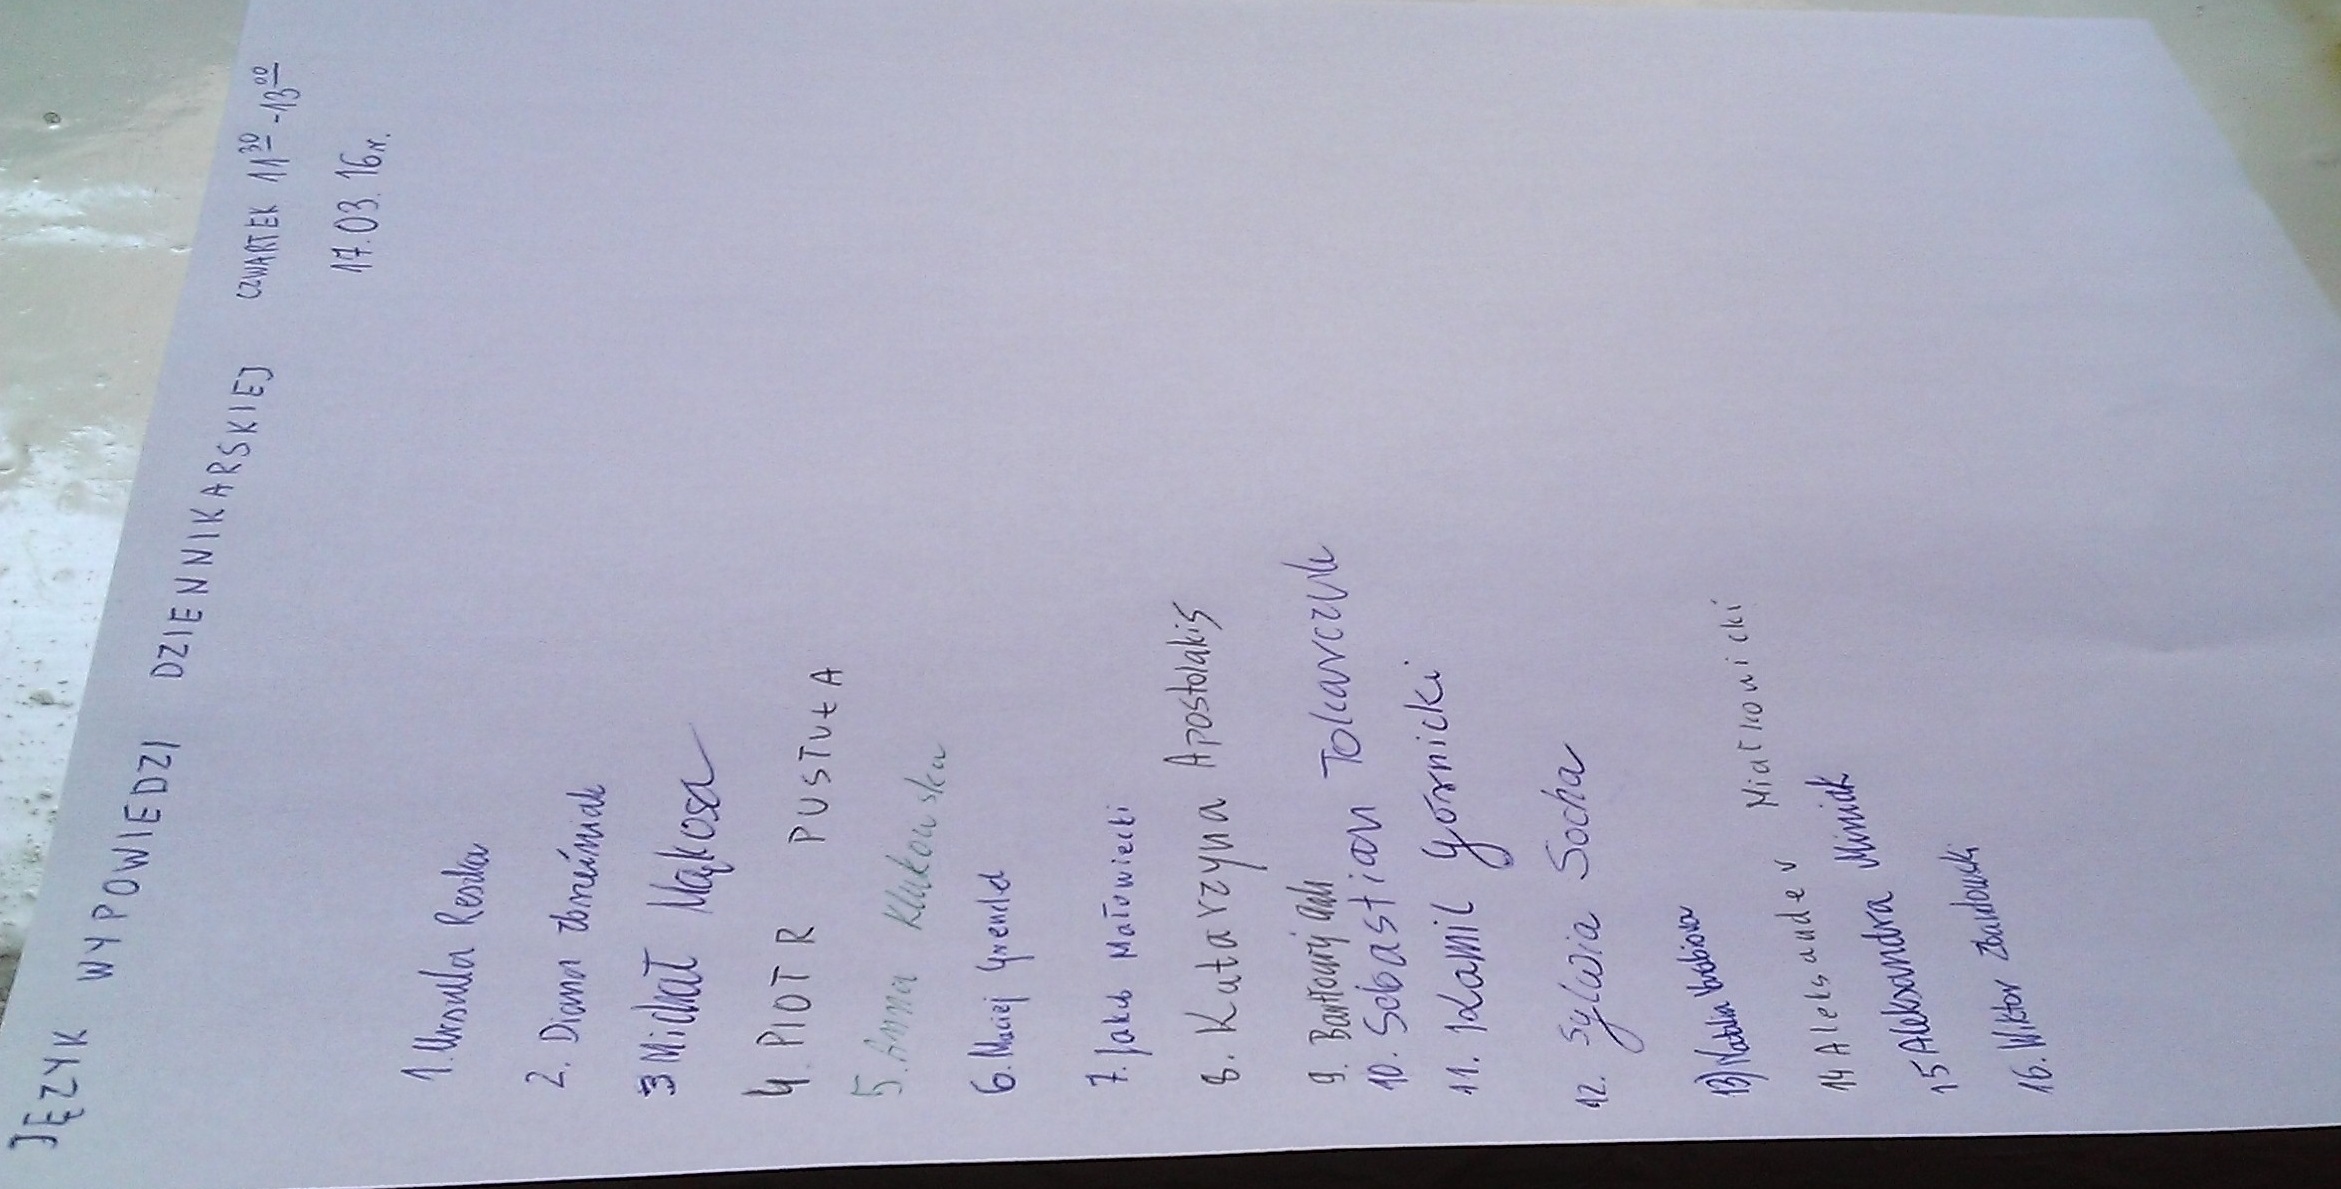 JĘZYK WYPOWIEDZI DZIENNIKARSKIEJ CZWARTEK 11³⁰-13⁰⁰
17.03.16r.
1. Urszula Reszka
2. Diana
3 Michał Mąkosa
4. PIOTR PUSTUŁA
5. Anna Klukowska
6. Maciej
7. Jakub Małowiecki
8. Katarzyna Apostolakis
9. Bartłomiej
10. Sebastian Tokarczuk
11. Kamil Górnicki
12. Sylwia Socha
13) Natalia
14 Aleksander Miatkowicki
15 Aleksandra Miniak
16. Wiktor